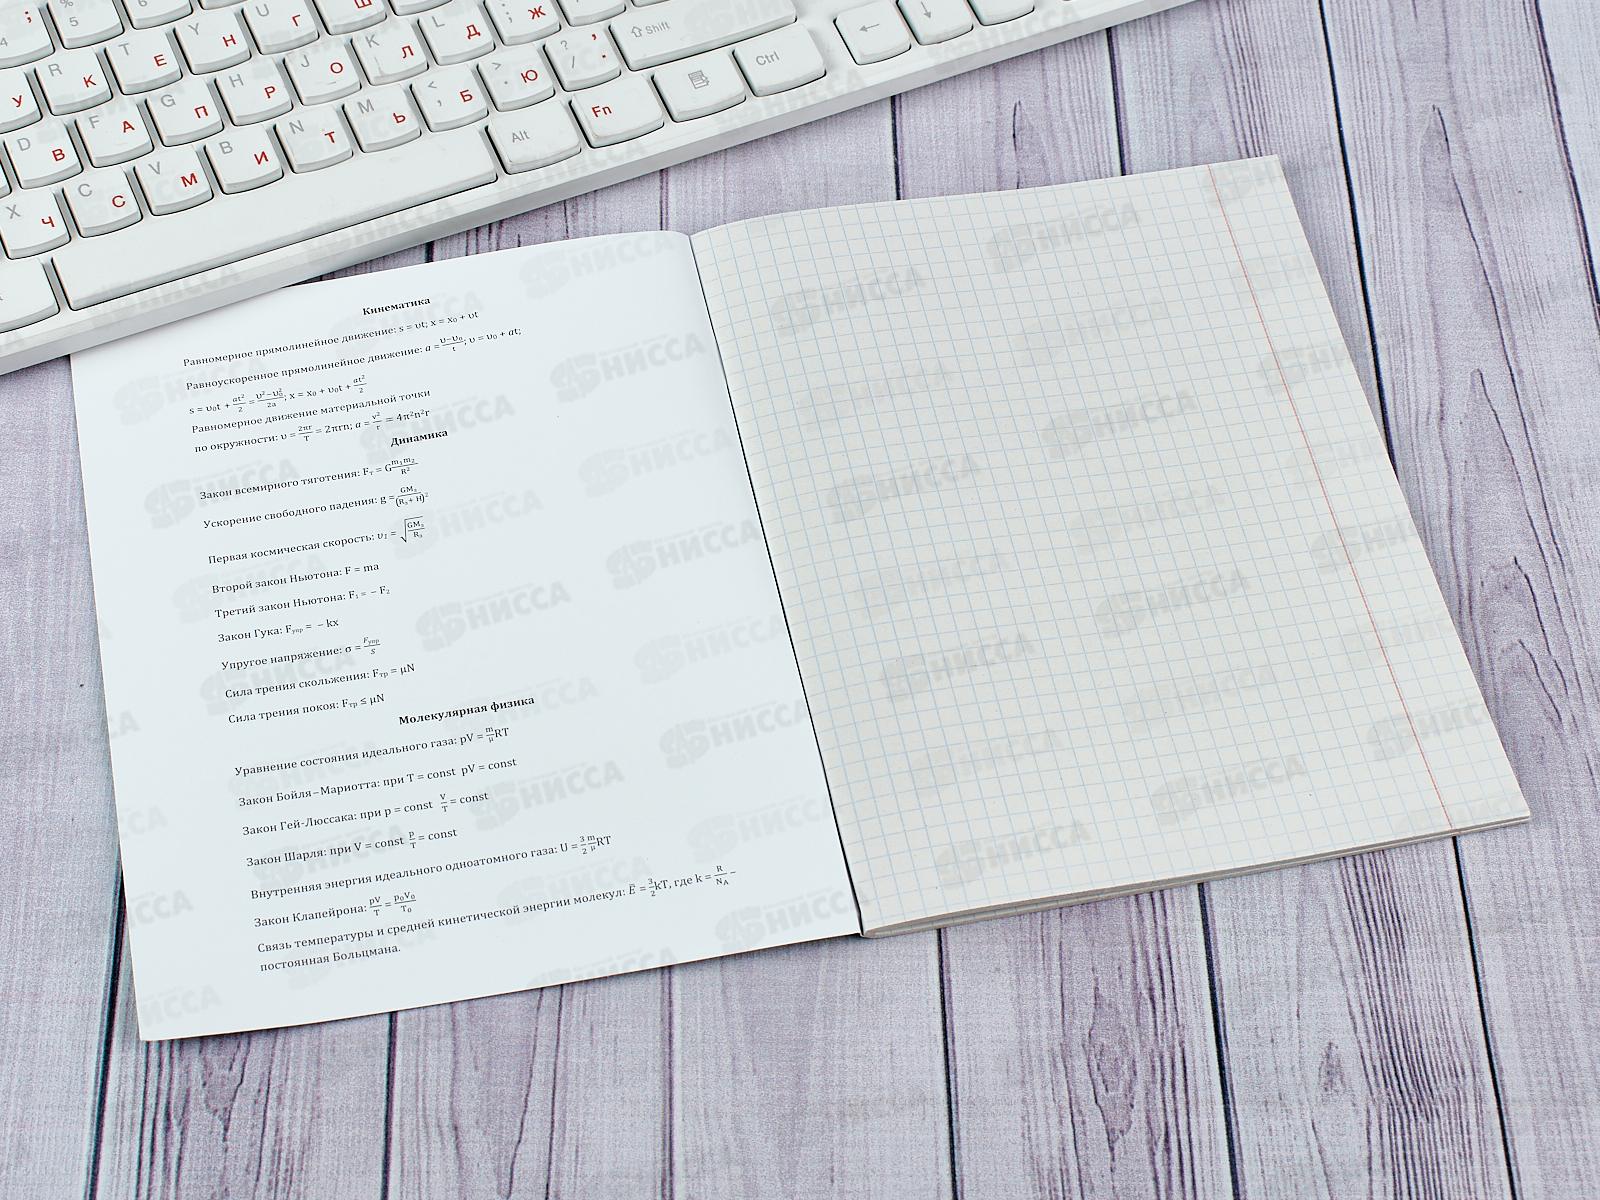 % 5 6 U Г Ш ; Ж
4 T Е Y Н J О K Л L Д ⇧ Shift ← ↓
У R К G П H Р M Ь < , Б > . Ю ? / , . Ctrl
D В F А V М B И N Т Alt Fn
X Ч C С
Кинематика
Равномерное прямолинейное движение: s = υt; x = x₀ + υt
Равноускоренное прямолинейное движение: a = (υ−υ₀)/t; υ = υ₀ + at;
s = υ₀t + at²/2 = (υ²−υ₀²)/2a; x = x₀ + υ₀t + at²/2
Равномерное движение материальной точки
по окружности: υ = 2πr/T = 2πrn; a = v²/r = 4π²n²r
Динамика
Закон всемирного тяготения: Fт = G m₁m₂/R²
Ускорение свободного падения: g = GMз/(Rз + H)²
Первая космическая скорость: υ₁ = √(GMз/Rз)
Второй закон Ньютона: F = ma
Третий закон Ньютона: F₁ = − F₂
Закон Гука: Fупр = − kx
Упругое напряжение: σ = Fупр/S
Сила трения скольжения: Fтр = μN
Сила трения покоя: Fтр ≤ μN
Молекулярная физика
Уравнение состояния идеального газа: pV = m/μ RT
Закон Бойля–Мариотта: при T = const pV = const
Закон Гей-Люссака: при p = const V/T = const
Закон Шарля: при V = const p/T = const
Внутренняя энергия идеального одноатомного газа: U = 3/2 m/μ RT
Закон Клапейрона: pV/T = p₀V₀/T₀
Связь температуры и средней кинетической энергии молекул: Ē = 3/2 kT, где k = R/Nᴀ –
постоянная Больцмана.
НИССА